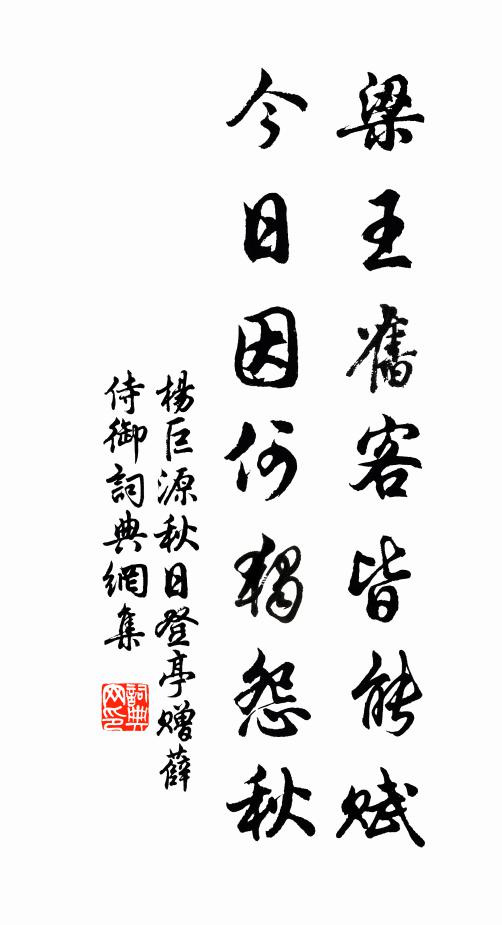 梁王舊客皆能賦
今日因何獨怨秋
楊巨源秋日登亭贈薛
侍御詞典網集
詞典
网印